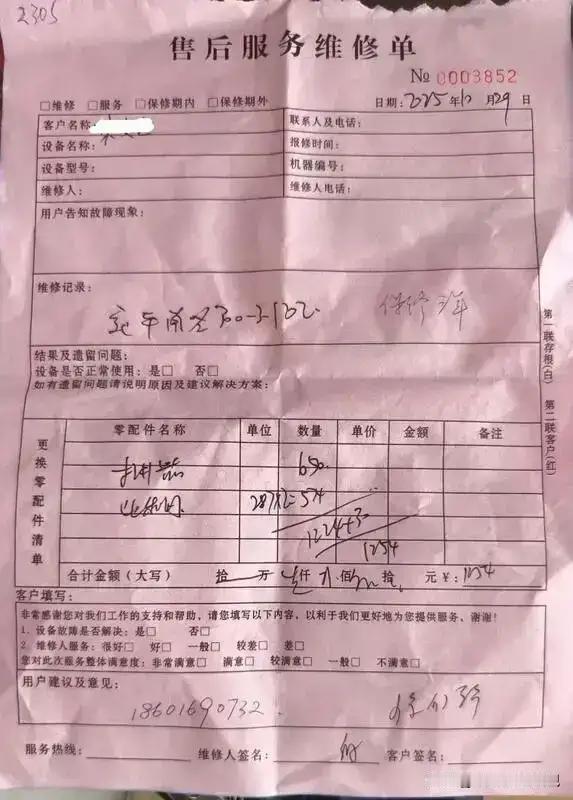 2305
售后服务维修单
№ 0003852
□维修 □服务 □保修期内 □保修期外 日期：2025年12月29日
客户名称： 联系人及电话：
设备名称： 报修时间：
设备型号： 机器编号：
维修人： 维修人电话：
用户告知故障现象：
维修记录：
保修 年
结果及遗留问题：
设备是否正常使用：是□ 否□
如有遗留问题请说明原因及建议解决方案：
更换零配件清单
零配件名称 单位 数量 单价 金额 备注
650
287×2=574
1224+30
1254
合计金额（大写） 拾 万 仟 佰 拾 元 ¥：1254
客户填写：
非常感谢您对我们工作的支持和帮助，请您填写以下内容，以利于我们更好地为您提供服务、谢谢！
1、设备故障是否解决：是□ 否□
2、维修人服务：很好□ 好□ 一般□ 较差□ 差□
您对此次服务整体满意度：非常满意□ 满意□ 较满意□ 一般□ 不满意□
用户建议及意见：
18601690732
服务热线： 维修人签名： 客户签名：
第一联存根(白) 第二联客户(红)